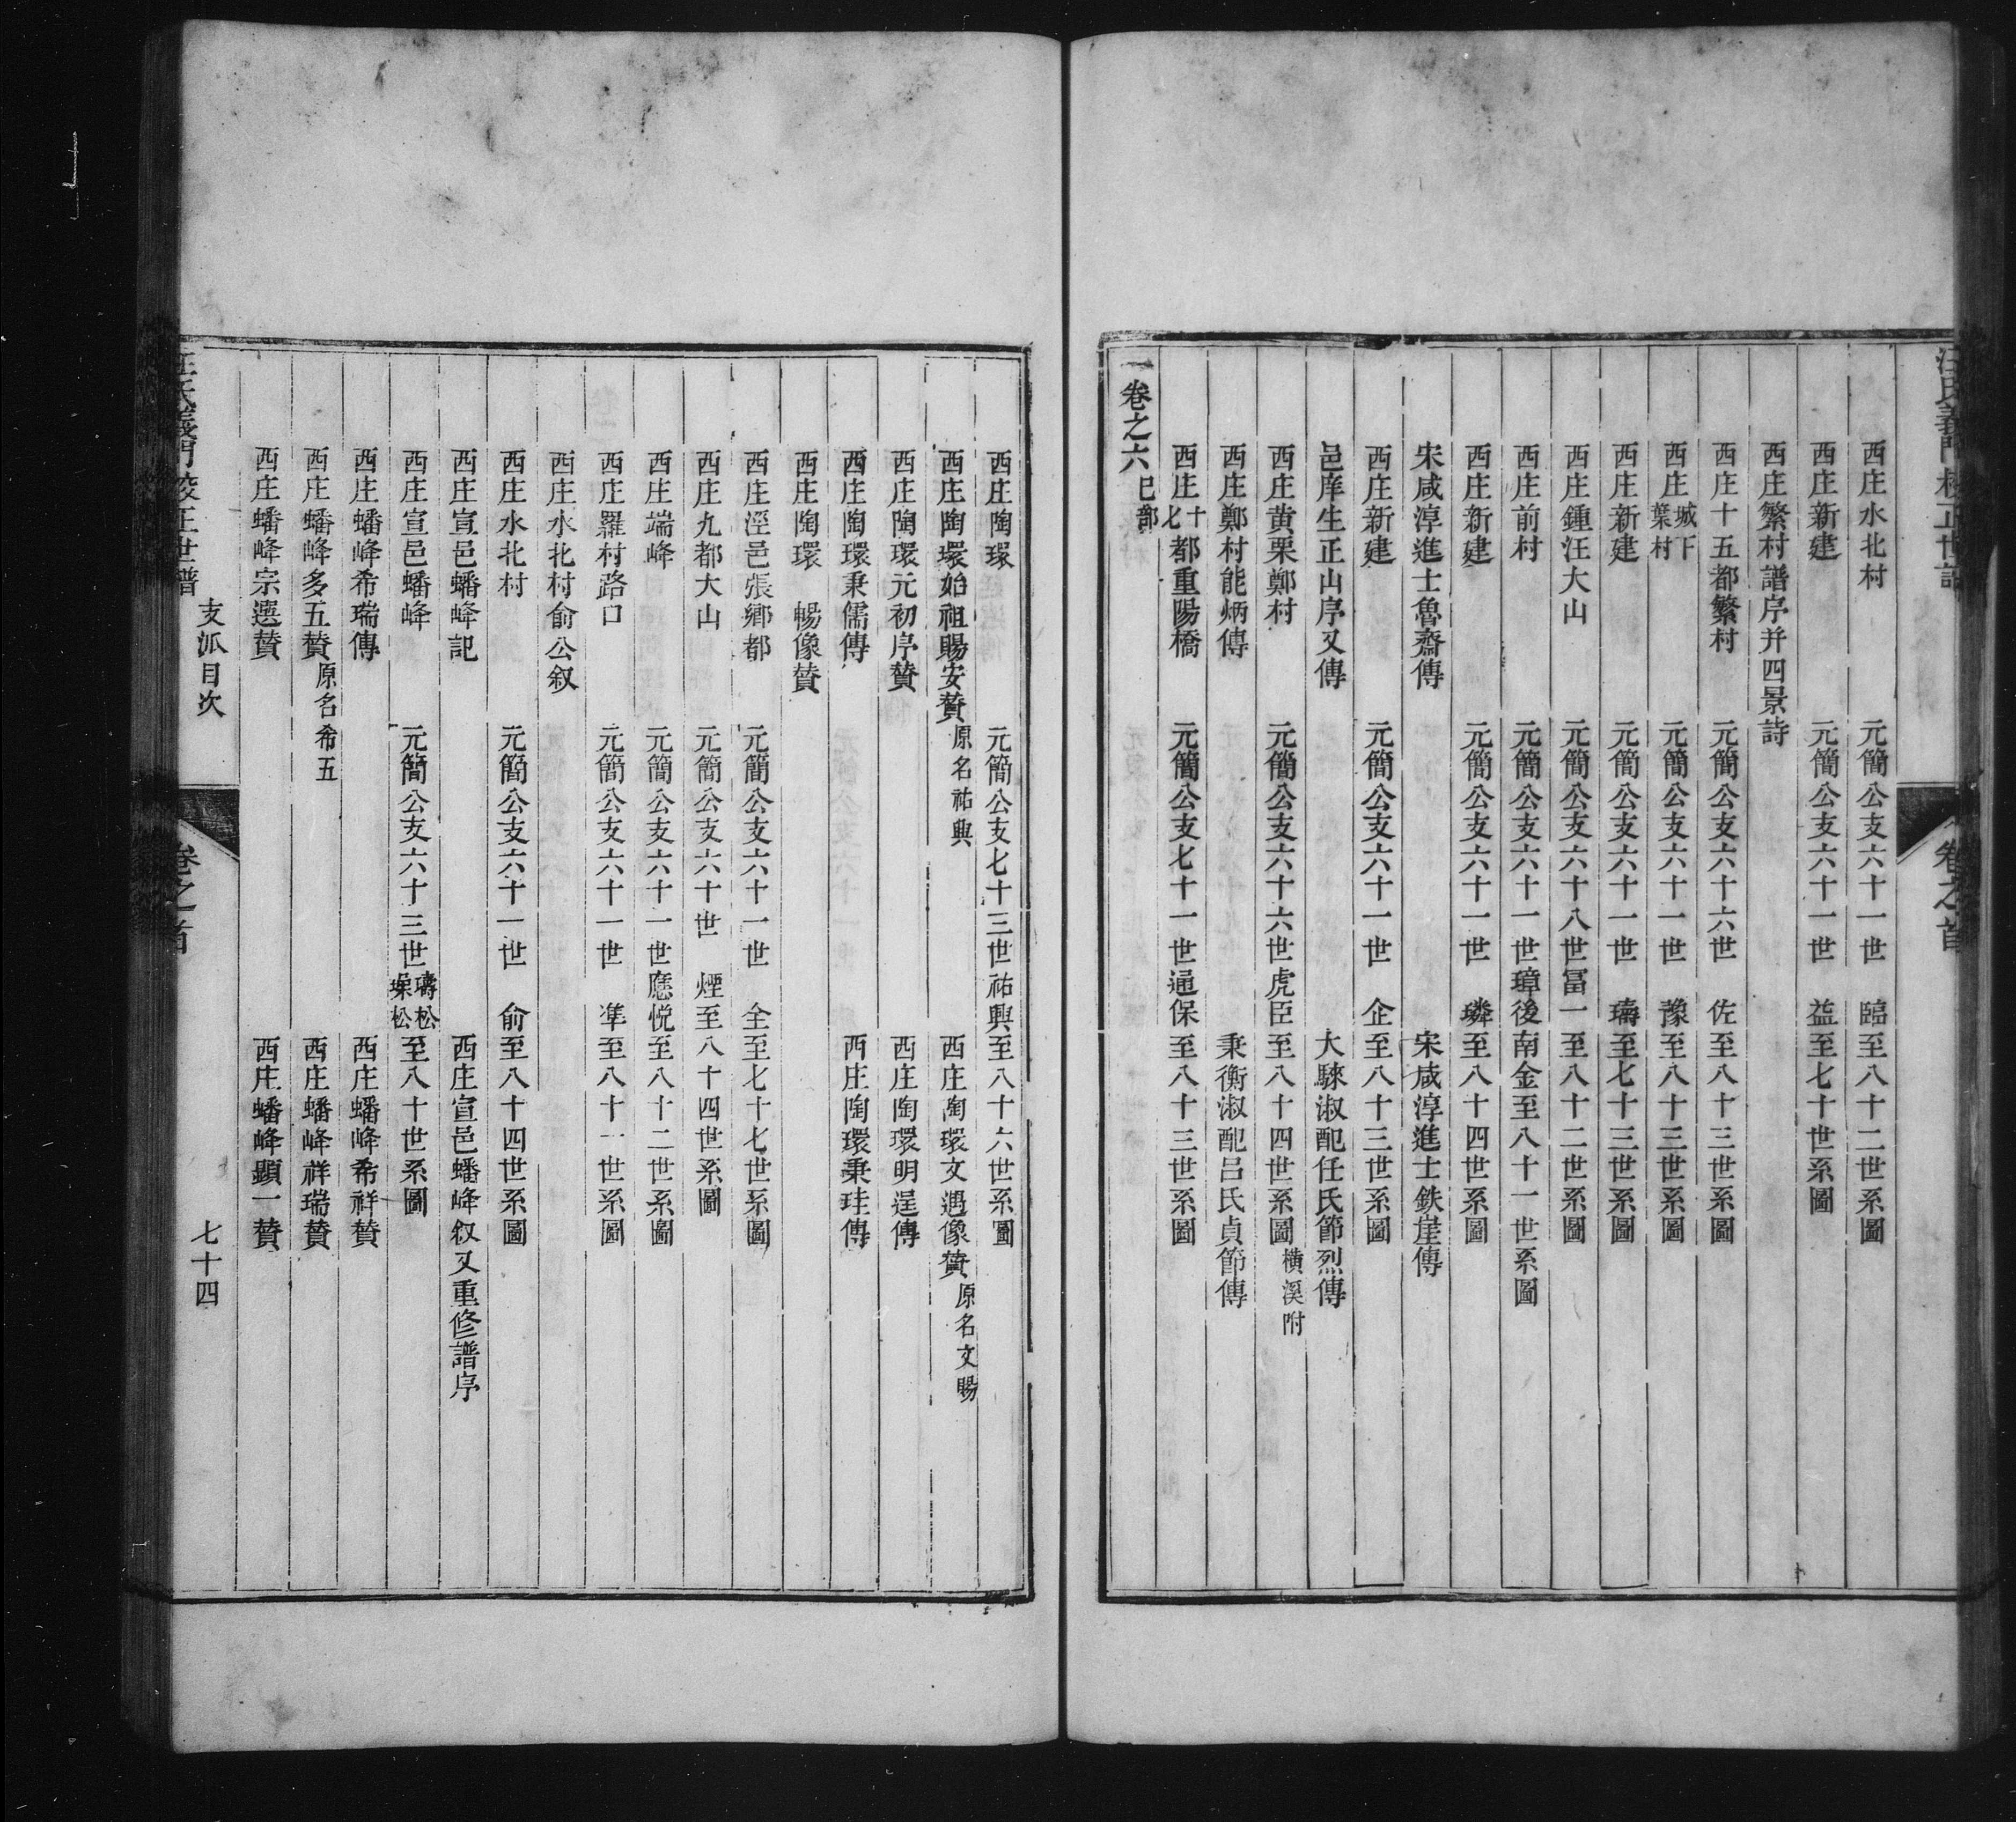 汪氏義門校正世譜
卷之首
西庄水北村 元簡公支六十一世 臨至八十二世系圖
西庄新建 元簡公支六十一世 益至七十世系圖
西庄繁村譜序并四景詩
西庄十五都繁村 元簡公支六十六世 佐至八十三世系圖
西庄城下葉村 元簡公支六十一世 豫至八十三世系圖
西庄新建 元簡公支六十一世 璹至七十三世系圖
西庄鍾汪大山 元簡公支六十八世冨一至八十二世系圖
西庄前村 元簡公支六十一世璋後南金至八十一世系圖
西庄新建 元簡公支六十一世 璘至八十四世系圖
宋咸淳進士魯齋傳 宋咸淳進士鉄崖傳
西庄新建 元簡公支六十一世 企至八十三世系圖
邑庠生正山序又傳 大騋淑配任氏節烈傳
西庄黄栗鄭村 元簡公支六十六世虎臣至八十四世系圖橫溪附
西庄鄭村能炳傳 秉衡淑配吕氏貞節傳
西庄十七都重陽橋 元簡公支七十一世通保至八十三世系圖
卷之六巳部
西庄陶環 元簡公支七十三世祐興至八十六世系圖
西庄陶環始祖賜安贊原名祐興 西庄陶環文遇像贊原名文賜
西庄陶環元初序贊 西庄陶環明逞傳
西庄陶環秉儒傳 西庄陶環秉珪傳
西庄陶環 暢像贊
西庄涇邑張鄉都 元簡公支六十一世 全至七十七世系圖
西庄九都大山 元簡公支六十世 煙至八十四世系圖
西庄端峰 元簡公支六十一世應悅至八十二世系圖
西庄羅村路口 元簡公支六十一世 凖至八十一世系圖
西庄水北村俞公叙
西庄水北村 元簡公支六十一世 俞至八十四世系圖
西庄宣邑蟠峰記 西庄宣邑蟠峰叙又重修譜序
西庄宣邑蟠峰 元簡公支六十三世璹松璪松至八十世系圖
西庄蟠峰希瑞傳 西庄蟠峰希祥贊
西庄蟠峰多五贊原名希五 西庄蟠峰祥瑞贊
西庄蟠峰宗選贊 西庄蟠峰顯一贊
汪氏義門校正世譜
支派目次
卷之首
七十四